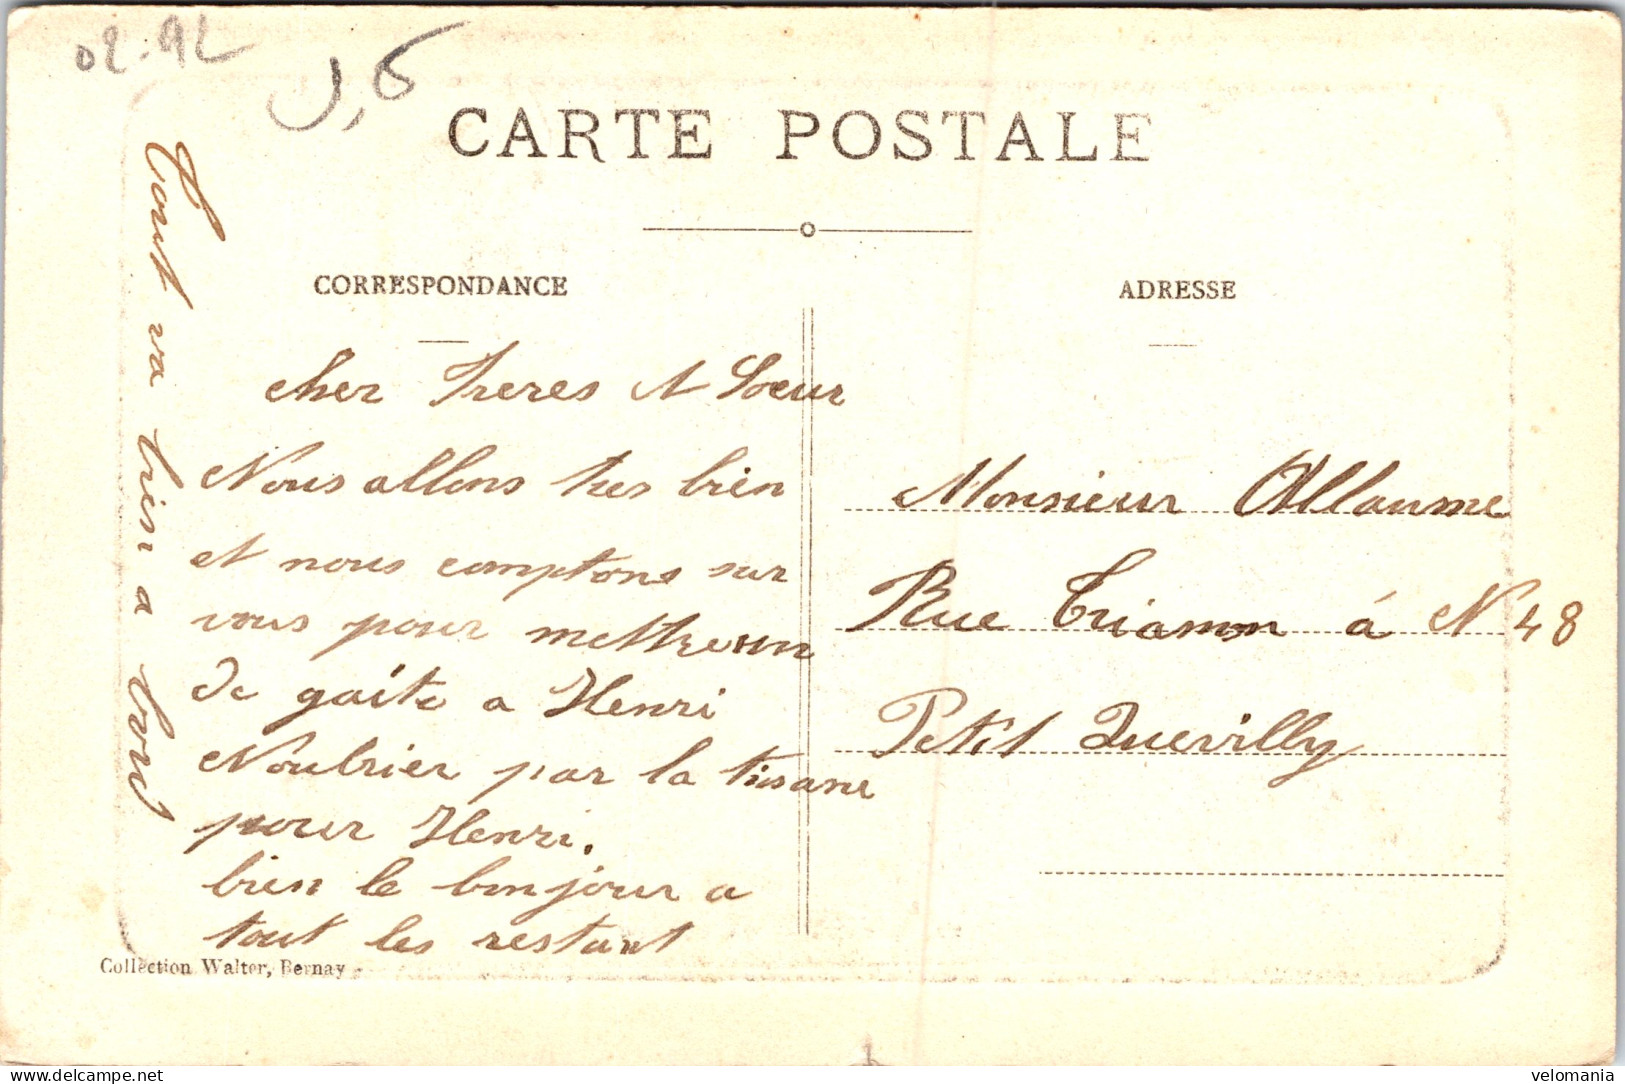 02-92
CARTE POSTALE
CORRESPONDANCE
ADRESSE
cher Freres et Soeur
Nous allons tres bien
et nous comptons sur
vous pour mettre un
de gaite a Henri
Noublier par la tisane
pour Henri.
bien le bonjour a
tout les restant
Tout va bien a bord
Monsieur Allaume
Rue Trianon á N 48
Petit Quevilly
Collection Walter, Bernay
delcampe.net
velomania